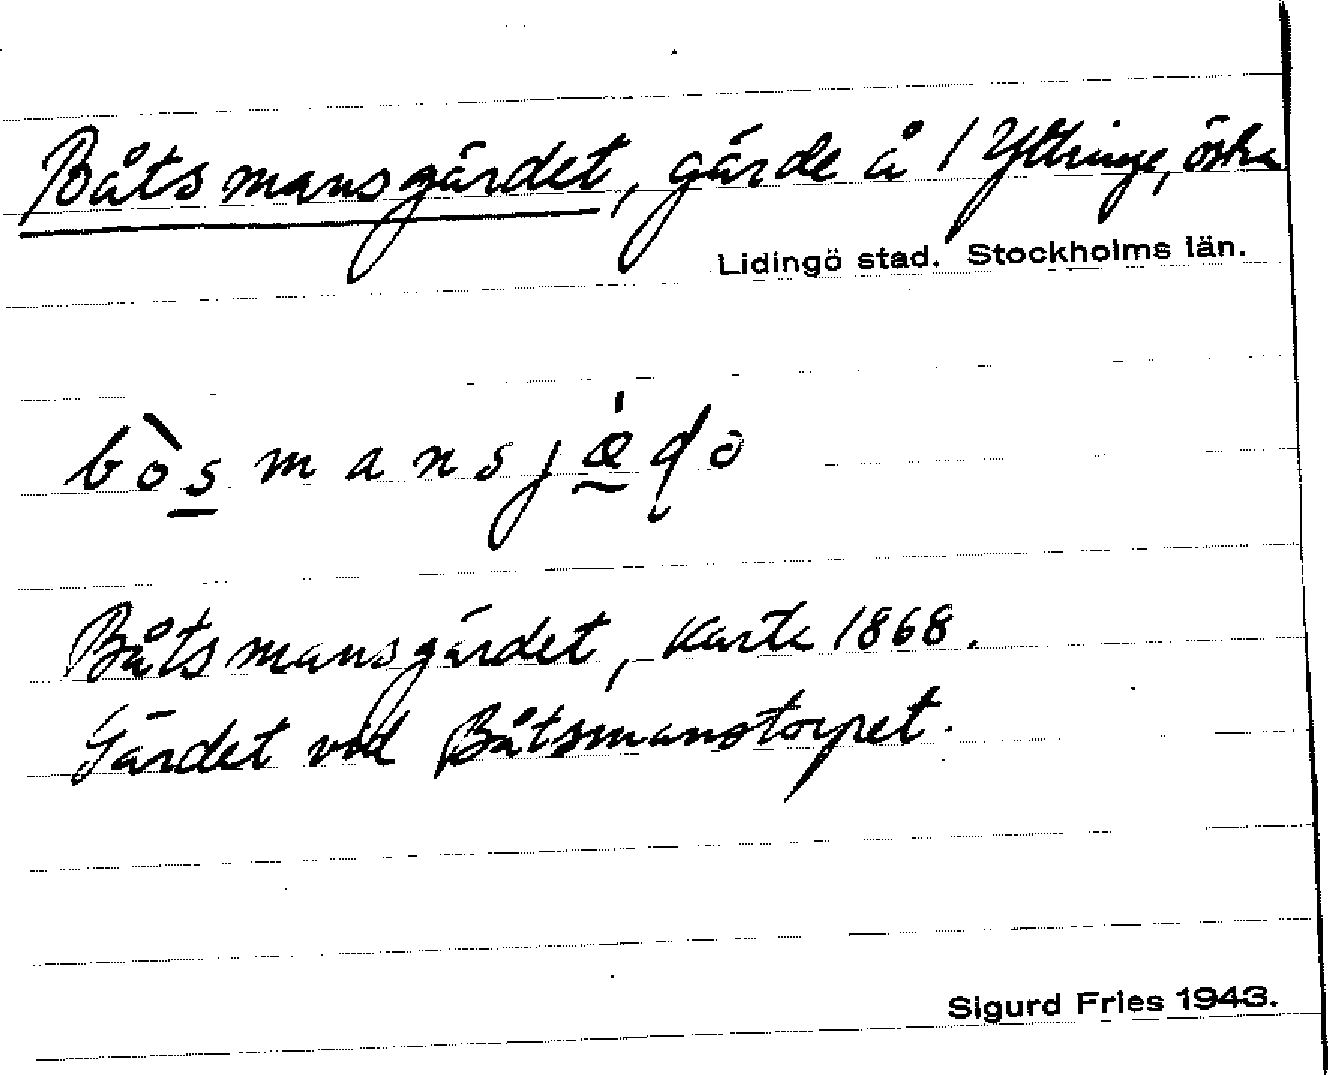 Båtsmansgärdet, gärde å 1 Yttringe, östra
Lidingö stad. Stockholms län.
Båtsmansgärdet, karta 1868.
Gärdet vid Båtsmanstorpet.
Sigurd Fries 1943.